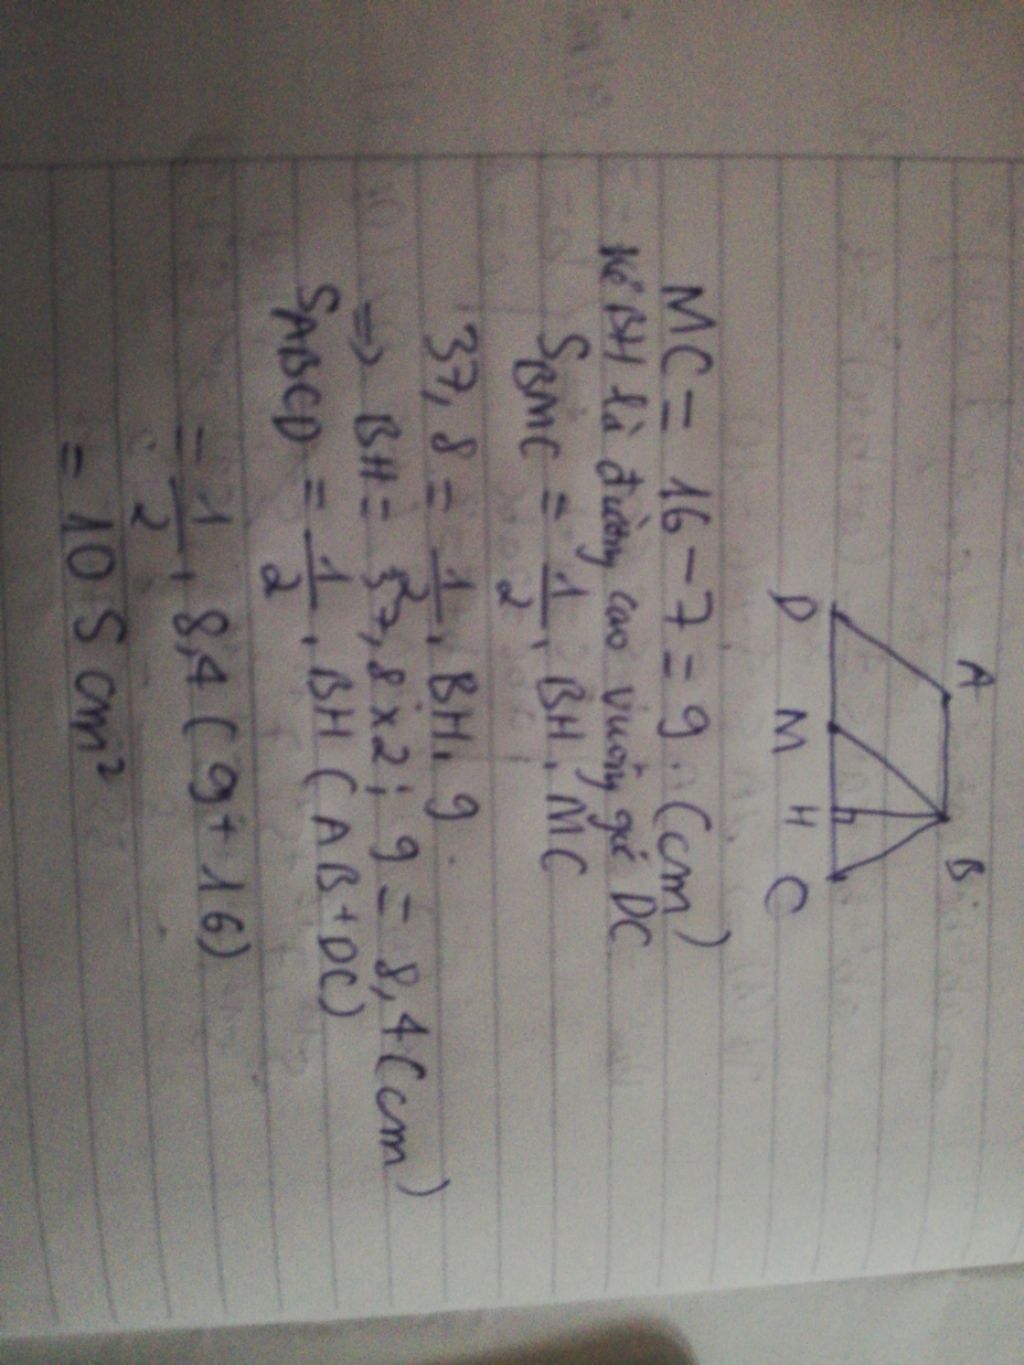 A B
D M H C
MC = 16 - 7 = 9 (cm)
Kẻ BH là đường cao vuông góc DC
SBMC = 1/2 . BH . MC
37,8 = 1/2 . BH . 9
=> BH = 37,8 x 2 : 9 = 8,4 (cm)
SABCD = 1/2 . BH (AB + DC)
= 1/2 . 8,4 (9 + 16)
= 105 cm²